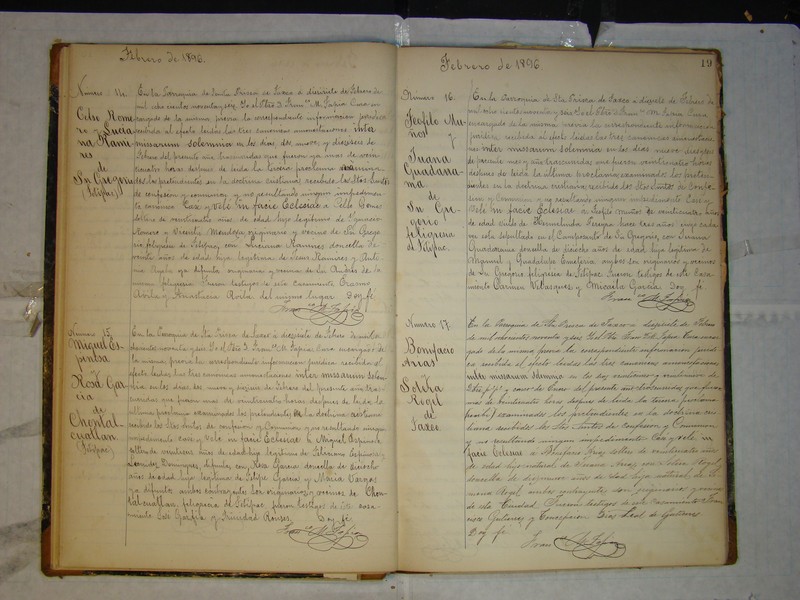 Febrero de 1896.
Número 14.
Celso Rome
ro y Lucia
na Rami
res
de
Sn Gregorio
En la Parroquia de Santa Prisca de Taxco a diecisiete de Febrero de
mil ocho cientos noventa y seis, Yo el Pbro. D. Fran.co M. Tapia Cura en
cargado de la misma, previa la correspondiente información jurídica
recibida al efecto, leidas las tres canonicas amonestaciones inter
missarum solemnia en los dias dos, nueve y dieciseis de
Febrero del presente año, trascurridas que fueron ya mas de veinti
cuatro horas despues de leida la tercera proclama,
los pretendientes en la doctrina cristiana, recibidos los Stos. Santos
de confesion y comunion y no resultando ningun impedimen
to canonico Casé y Velé in facie Eclesiae a Celso Romero
soltero de veinticuatro años de edad hijo legítimo de Ignacio
Romero y Vicenta Mendoza, originario y vecino de Sn. Grego
rio feligresia de Tetipac, con Luciana Ramires doncella de
veinte años de edad hija legítima de Jesus Ramires y
ya difunta originaria y vecina de Sn. Andres de la
misma feligresia. Fueron testigos de este casamiento Erasmo
Avila y Anastacia Avila del mismo lugar. Doy fé.
Fran.co M. Tapia
Número 15.
Miguel Es
pinosa
y
Rosa Gar
cia
de
(Tetipac)
En la Parroquia de Sta Prisca de Taxco a diecisiete de Febrero de mil ocho
cientos noventa y seis Yo el Pbro. D. Fran.co M. Tapia, Cura encargado de
la misma, previa la correspondiente informacion juridica recibida al
efecto, leidas las tres canonicas amonestaciones inter missarum solem
nia en los dias dos, nueve y dieciseis de Febrero del presente año, tras
curridas que fueron mas de veinticuatro horas despues de leida la
ultima proclama, examinados los pretendientes en la doctrina cristiana
recibidos los Stos. Santos de confesion y Comunion, y no resultando ningun
impedimento casé y velé in facie Eclesiae a Miguel Espinosa,
soltero de veintiseis años de edad, hijo legítimo de Feliciano Espinosa y
Dominguez, difuntos, con Rosa Garcia doncella de dieciocho
años de edad, hija legítima de Felipe Garcia y Maria Vargas
ya difunta, ambos contrayentes son originarios y vecinos de
feligresia de Tetipac, fueron testigos de este casa
miento José Garcia y Trinidad Doy fé.
Fran.co M. Tapia
Febrero de 1896
19
Número 16.
Teofilo Mu
ñoz y
Juana
Guadarra
ma
de
Sn Gre
gorio
feligresia
de Tetipac.
En la Parroquia de Sta Prisca de Taxco a diecisiete de Febrero de
mil ocho cientos noventa y seis Yo el Pbro. D. Fran.co M. Tapia Cura
encargado de la misma previa la correspondiente informacion
juridica recibida al efecto leidas las tres canonicas amonestacio
nes inter missarum solemnia en los dias nueve dieciseis
de presente mes y año, trascurridas que fueron veinticuatro horas
despues de leida la ultima proclama, examinados los preten
dientes en la doctrina cristiana recibidos los Stos Santos de Confe
sion y Comunion y no resultando ningun impedimento Casé y
Velé in facie Eclesiae a Teofilo Muñoz de veinticinco años
de edad viudo de Hermelinda hace tres años, cuyo cada
ver está sepultado en el Camposanto de Sn. Gregorio, con Juana
Guadarrama doncella de dieciocho años de edad hija legítima de
Manuel y Guadalupe ambos son originarios y vecinos
de Sn. Gregorio, feligresia de Tetipac. Fueron testigos de este Casa
miento Carmen Velasquez, y Micaela Garcia. Doy fé
Fran.co M. Tapia
Número 17.
Bonifacio
Arias
y
Sotera
Rogel
de
Taxco.
En la Parroquia de Sta Prisca de Taxco a diecisiete de Febrero
de mil ochocientos noventa y seis Yo el Pbro. D. Fran.co M. Tapia Cura encar
gado de la misma previa la correspondiente informacion juridi
ca recibida al efecto leidas las tres canonicas amonestaciones
inter missarum solemnia en los dias
y de Enero del presente año, trascurridas que fueron
mas de veinticuatro horas despues de leida la
examinados los pretendientes en la doctrina cris
tiana, recibidos los Stos Santos de Confesion y Comunion
y no resultando ningun impedimento Casé y velé in
facie Eclesiae a Bonifacio Arias, soltero de veinticuatro años
de edad hijo natural de Arias, con Sotera Rogel,
doncella de diecinueve años de edad hija natural de
Rogel, ambos contrayentes son originarios y vecinos
de esta Ciudad. Fueron testigos de este casamiento
Gutierrez y Concepcion Diaz Leal de Gutierrez
Doy fé
Fran.co M. Tapia